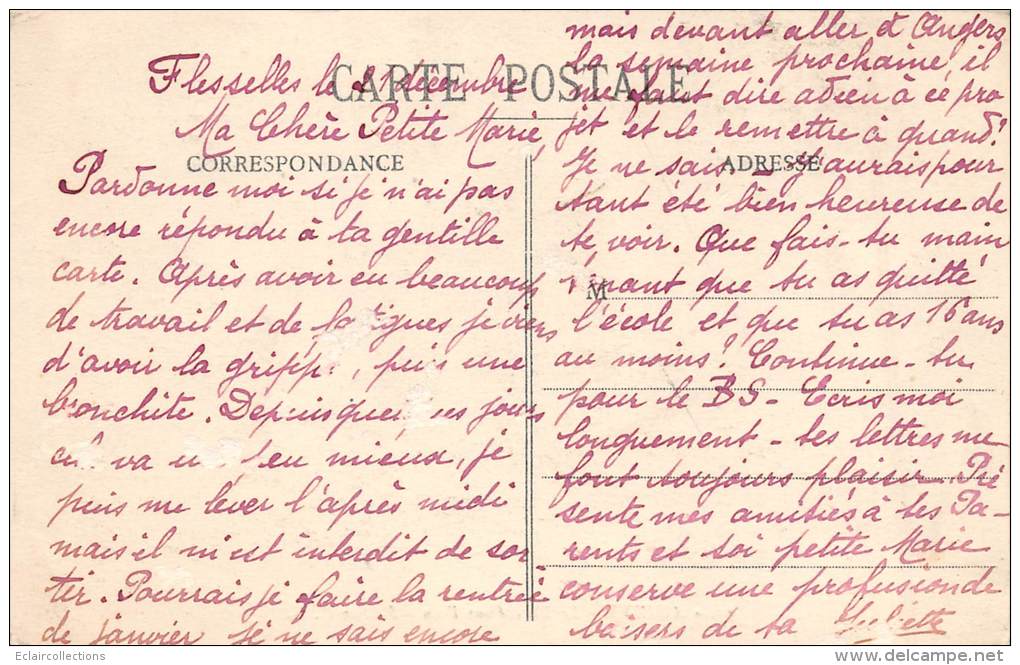 CARTE POSTALE
CORRESPONDANCE
ADRESSE
M
Flesselles le 31 décembre
Ma Chère Petite Marie,
Pardonne moi si je n'ai pas
encore répondu à ta gentille
carte. Après avoir eu beaucoup
de travail et de fatigues je viens
d'avoir la grippe, puis une
bronchite. Depuis quelques jours
ça va un peu mieux, je
puis me lever l'après midi
mais il m'est interdit de sor
tir. Pourrais je faire la rentrée
de janvier je ne sais encore
mais devant aller à Angers
la semaine prochaine, il
me faut dire adieu à ce pro
jet et le remettre à quand?
Je ne sais – J'aurais pour
tant été bien heureuse de
te voir. Que fais-tu main
tenant que tu as quitté
l'école et que tu as 16 ans
au moins? Continue-tu
pour le BS – Ecris moi
longuement – tes lettres me
font toujours plaisir – Pré
sente mes amitiés à tes Pa-
rents et toi petite Marie
conserve une profusion de
baisers de ta Juliette
Eclaircollections
www.delcampe.net